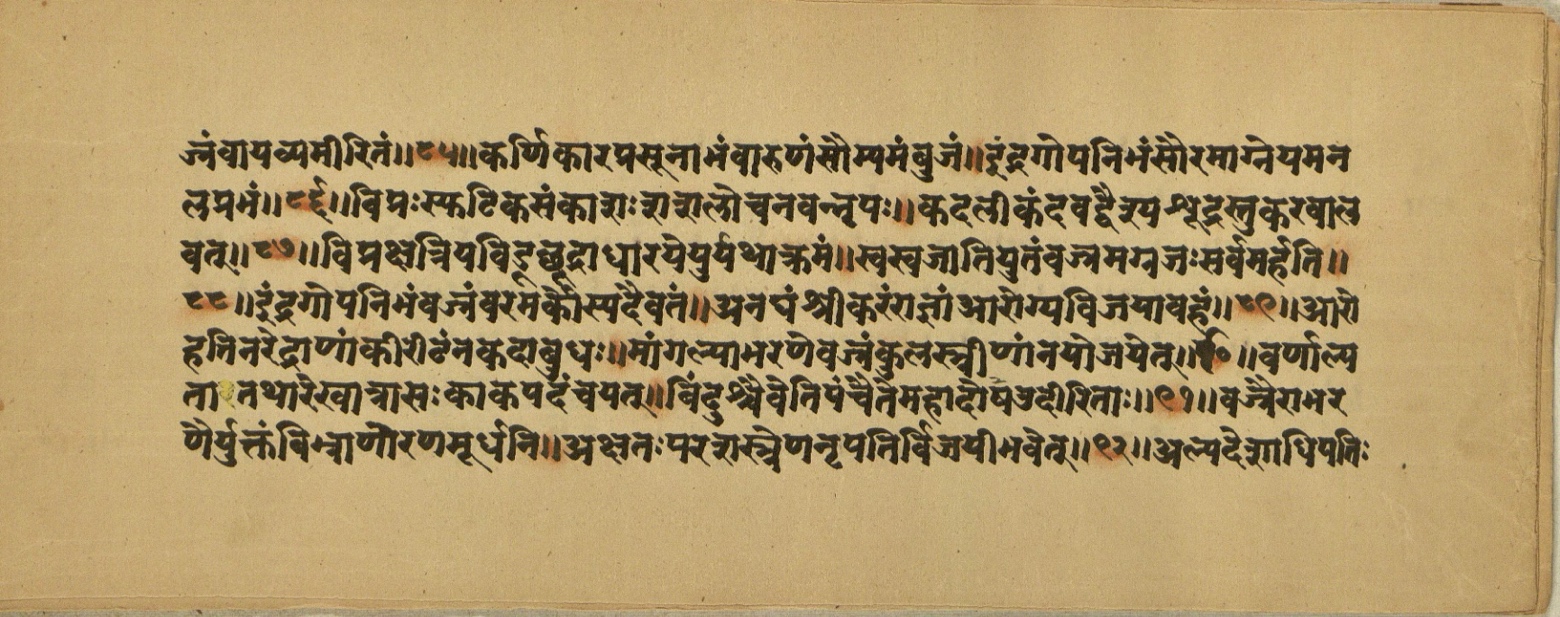 ज्रंवायव्यमीरितं॥८५॥कर्णिकारप्रसूनाभंवारुणंसौम्यमंबुजं॥इंद्रगोपनिभंसौरमाग्नेयमन
लप्रभं॥८६॥विप्रःस्फटिकसंकाशःशशलोचनवन्नृपः॥कदलीकंदवद्वैश्यश्शूद्रस्तुकरवाल
वत्॥८७॥विप्रक्षत्रियविड्छूद्राधारयेयुर्यथाक्रमं॥स्वस्वजातियुतंवज्रमग्रजःसर्वमर्हति॥
८८॥इंद्रगोपनिभंवज्रंवरमर्कोस्यदैवतं॥अनघंश्रीकरंराज्ञांआरोग्यविजयावहं॥८९॥आरो
हमिनरेंद्राणांकीरीटंनकदाबुधः॥मांगल्याभरणेवज्रंकुलस्त्रीणांनयोजयेत्॥९०॥वर्णाल्प
तातथारेखात्रासःकाकपदंचयत्॥बिंदुश्चैवेतिपंचैतेमहादोषउदीरिताः॥९१॥वज्रैराभर
णैर्युक्तंबिभ्राणोरणमूर्धनि॥अक्षतःपरशस्त्रेणनृपतिर्विजयीभवेत्॥९२॥अल्पदेशाधिपतिः